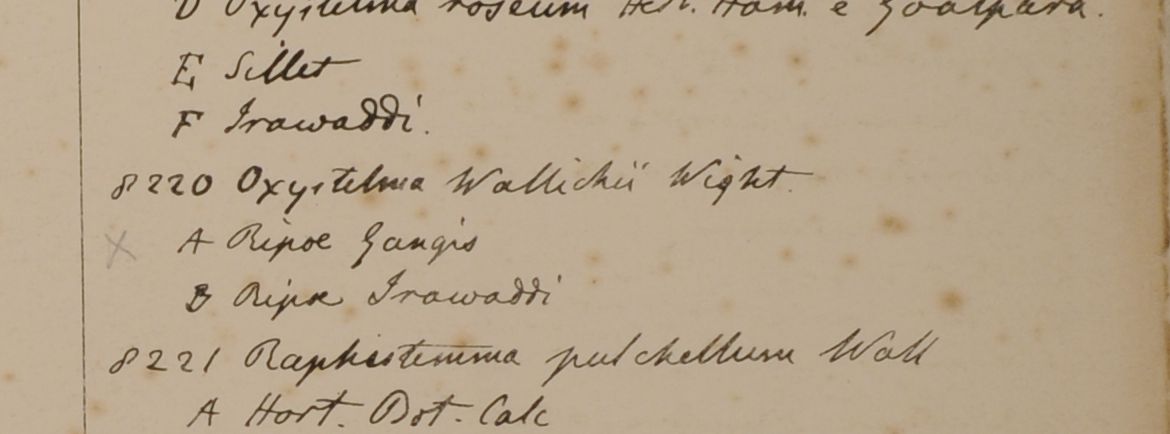 D Oxystelma roseum Her. Ham. e Goalpara.
E Sillet
F Irawaddi.
8220 Oxystelma Wallichii Wight.
X A Ripoe Gangis
B Ripoe Irawaddi
8221 Raphistemma pulchellum Wall
A Hort. Bot. Calc